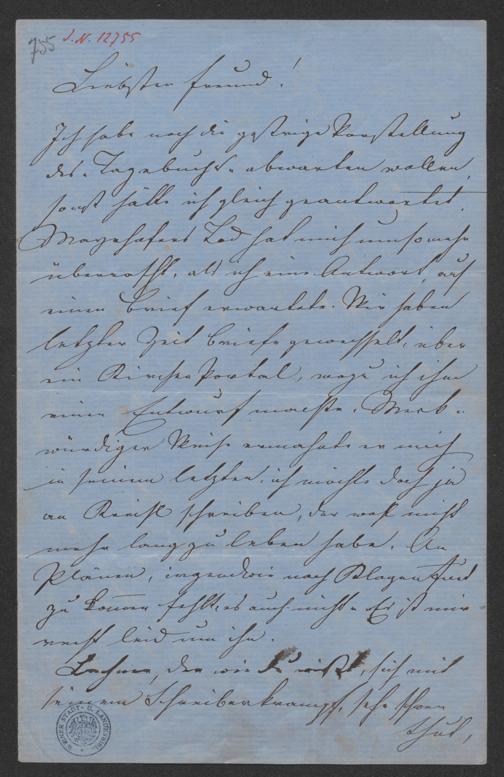 755 J.N. 12755
Liebster Freund!
Ich habe noch die gestrige Vorstellung
des "Tagebuchs" abwarten wollen,
sonst hätte ich gleich geantwortet.
Mayrhofers Tod hat mich umsomehr
überrascht, als ich eine Antwort auf
einen Brief erwartete. Wir haben
letzter Zeit Briefe gewechselt, über
ein Kirchen Portal, wozu ich ihm
einen Entwurf machte. Merk-
würdiger Weise ermahnte er mich
in seinem letzten, ich möchte doch ja
an schreiben, der wohl nicht
mehr lang zu leben habe. An
Plänen, irgendwie nach Klagenfurt
zu kommen fehlt es auch nicht. Es ist mir
recht leid um ihn.
der wie Du weißt, sich mit
seinem Schreiberkrampf, sehr schwer
thut,
WIENER STADT- U. LANDES